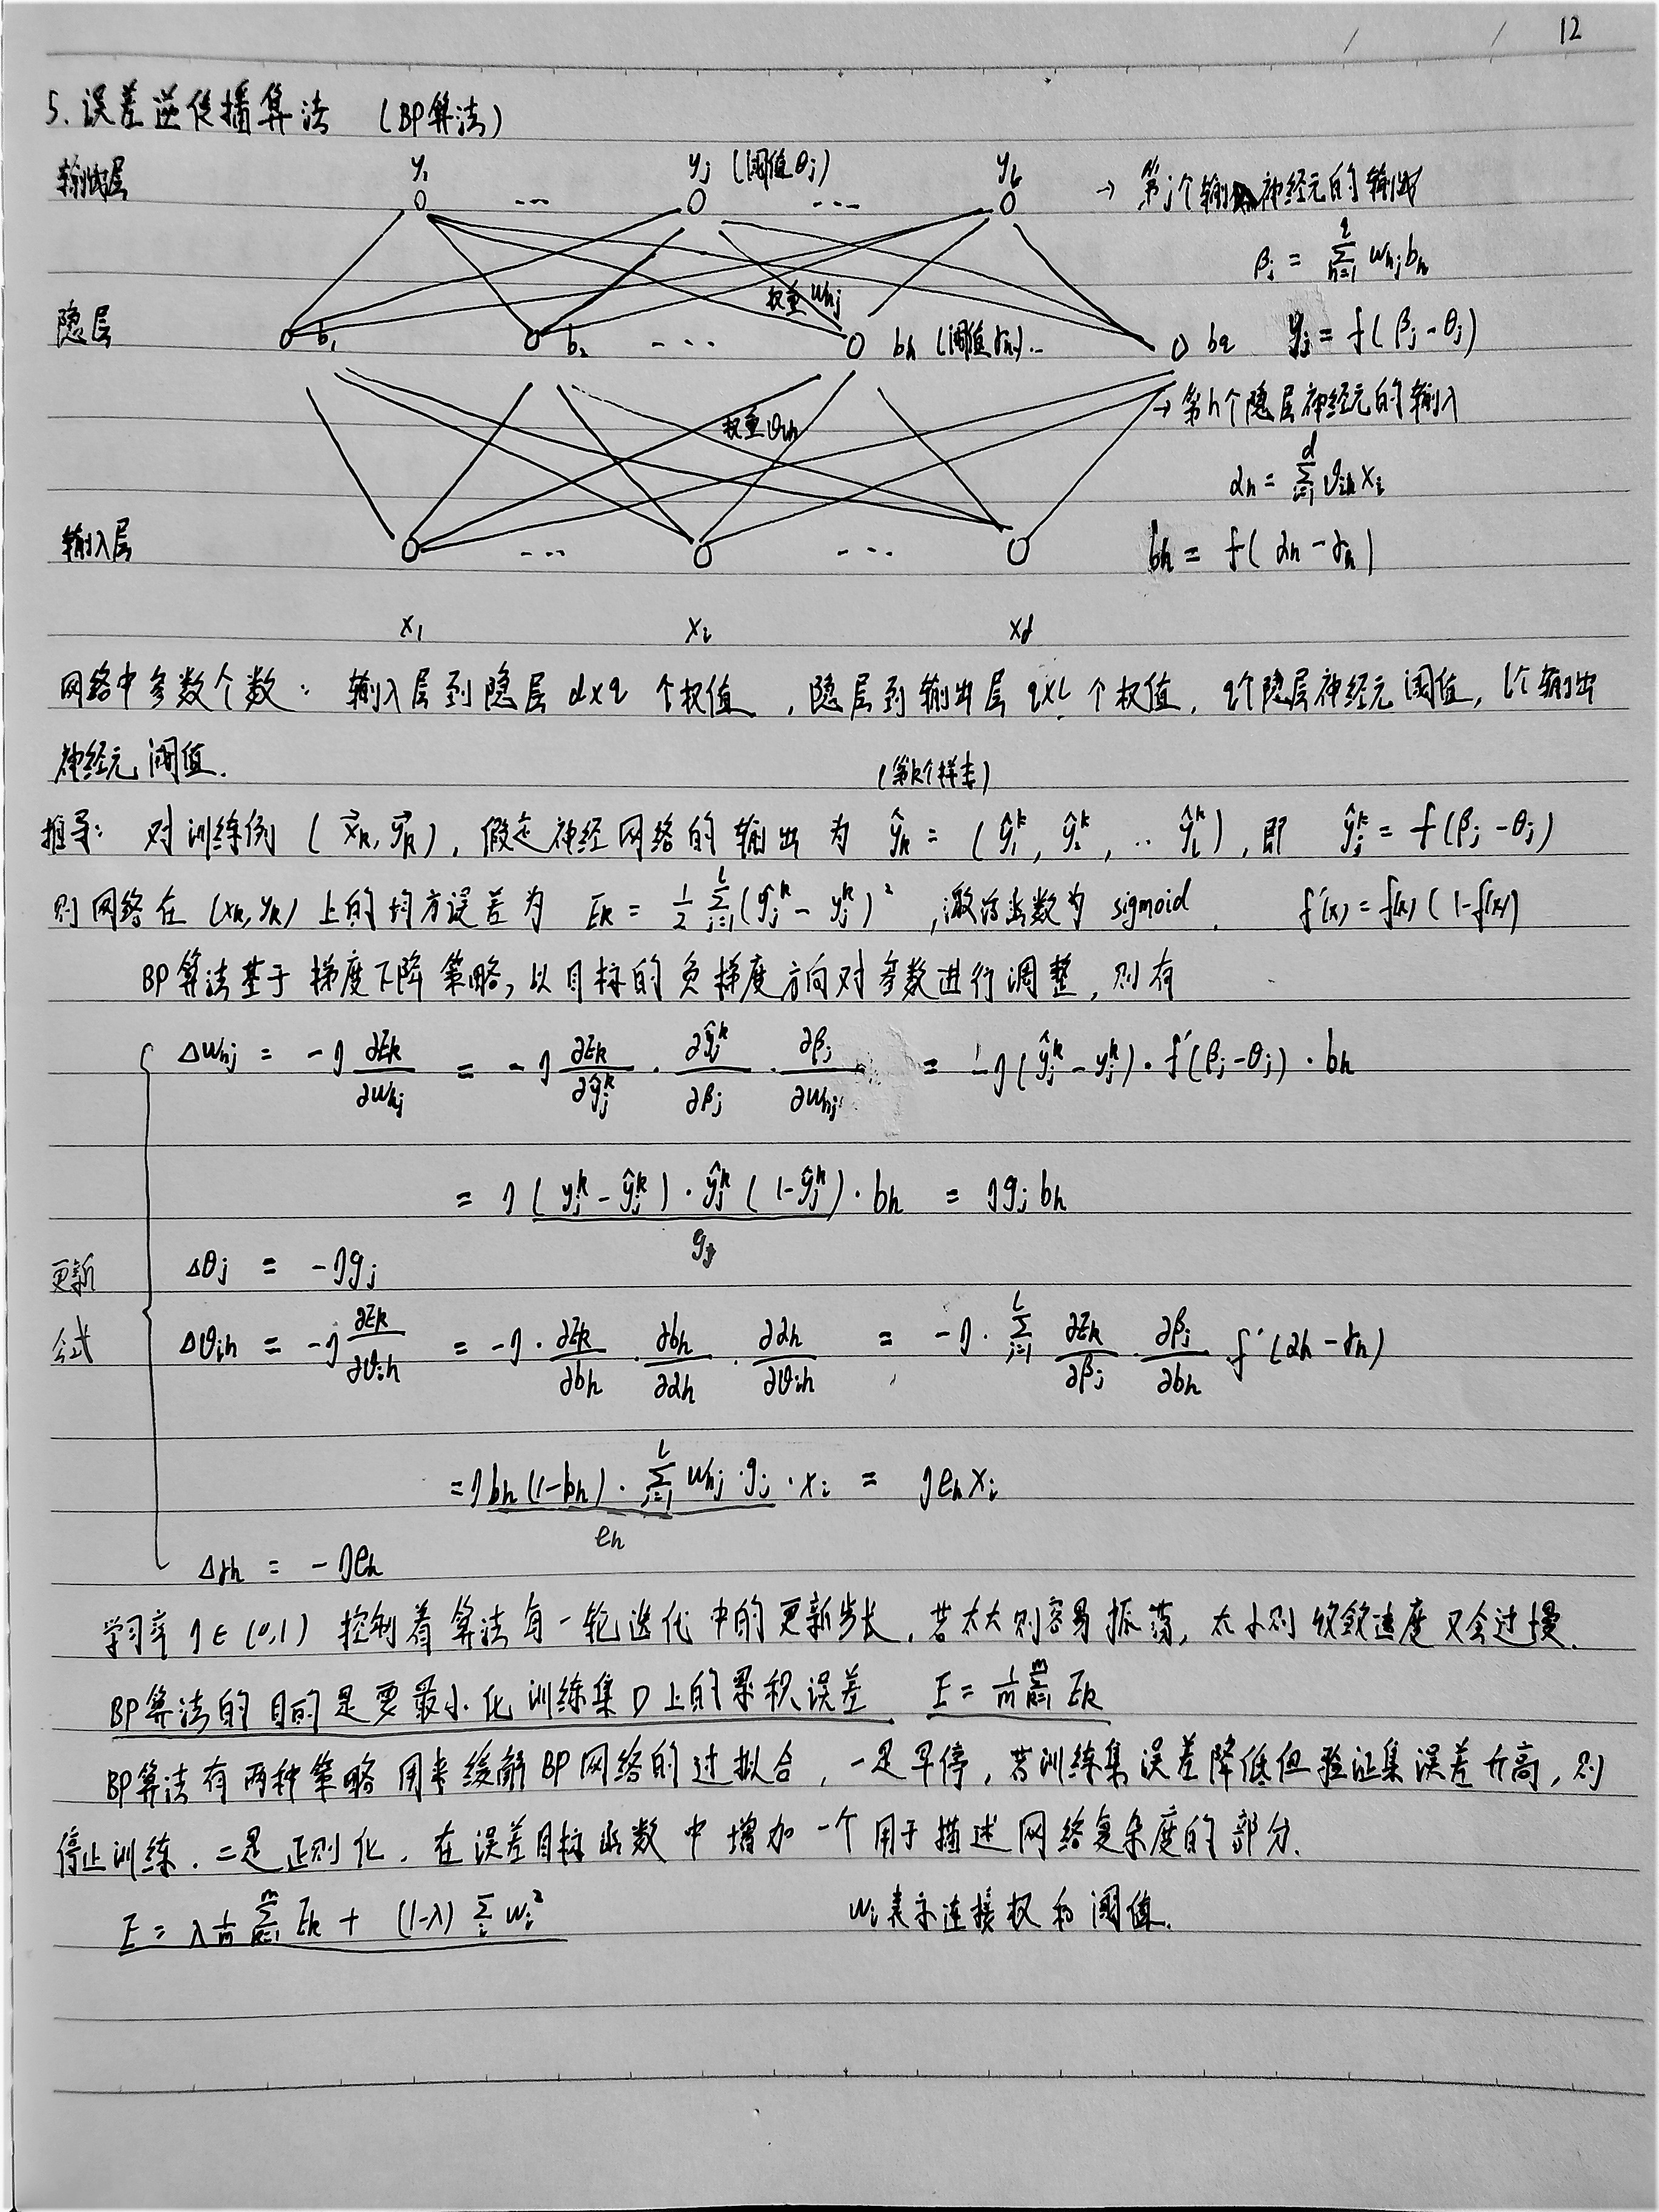 12
5. 误差逆传播算法 (BP算法)
输出层 y₁ ... yⱼ (阈值θⱼ) ... yₗ → 第j个输出神经元的输出
βⱼ = Σ_{h=1}^{q} wₕⱼbₕ
权重wₕⱼ
隐层 b₁ b₂ ... bₕ (阈值γₕ) .. b_q yⱼ = f(βⱼ - θⱼ)
→ 第h个隐层神经元的输入
权重vᵢₕ
αₕ = Σ_{i=1}^{d} vᵢₕxᵢ
输入层 ... ... bₕ = f(αₕ - γₕ)
x₁ xᵢ x_d
网络中参数个数: 输入层到隐层 d×q 个权值, 隐层到输出层 q×l 个权值, q个隐层神经元阈值, l个输出
神经元阈值.
(第k个样本)
推导: 对训练例 (x⃗ₖ, y⃗ₖ), 假定神经网络的输出为 ŷₖ = (ŷ₁ᵏ, ŷ₂ᵏ, .. ŷₗᵏ), 即 ŷⱼᵏ = f(βⱼ - θⱼ)
则网络在 (xₖ, yₖ) 上的均方误差为 Eₖ = 1/2 Σ_{j=1}^{l} (ŷⱼᵏ - yⱼᵏ)², 激活函数为 sigmoid. f'(x) = f(x)(1-f(x))
BP算法基于梯度下降策略, 以目标的负梯度方向对参数进行调整, 则有
Δwₕⱼ = -η ∂Eₖ/∂wₕⱼ = -η ∂Eₖ/∂ŷⱼᵏ · ∂ŷⱼᵏ/∂βⱼ · ∂βⱼ/∂wₕⱼ = -η(ŷⱼᵏ - yⱼᵏ) · f'(βⱼ - θⱼ) · bₕ
= η(yⱼᵏ - ŷⱼᵏ) · ŷⱼᵏ(1 - ŷⱼᵏ) · bₕ = ηgⱼbₕ
gⱼ
更新 Δθⱼ = -ηgⱼ
公式 Δvᵢₕ = -η ∂Eₖ/∂vᵢₕ = -η · ∂Eₖ/∂bₕ · ∂bₕ/∂αₕ · ∂αₕ/∂vᵢₕ = -η · Σ_{j=1}^{l} ∂Eₖ/∂βⱼ · ∂βⱼ/∂bₕ · f'(αₕ - γₕ)
= ηbₕ(1-bₕ) · Σ_{j=1}^{l} wₕⱼ · gⱼ · xᵢ = ηeₕxᵢ
eₕ
Δγₕ = -ηeₕ
学习率 η∈(0,1) 控制着算法每一轮迭代中的更新步长, 若太大则容易振荡, 太小则收敛速度又会过慢.
BP算法的目的是要最小化训练集D上的累积误差 E = 1/m Σ_{k=1}^{m} Eₖ
BP算法有两种策略用来缓解BP网络的过拟合, 一是早停, 若训练集误差降低但验证集误差升高, 则
停止训练. 二是正则化. 在误差目标函数中增加一个用于描述网络复杂度的部分.
E = λ 1/m Σ_{k=1}^{m} Eₖ + (1-λ) Σᵢ wᵢ² wᵢ表示连接权和阈值.